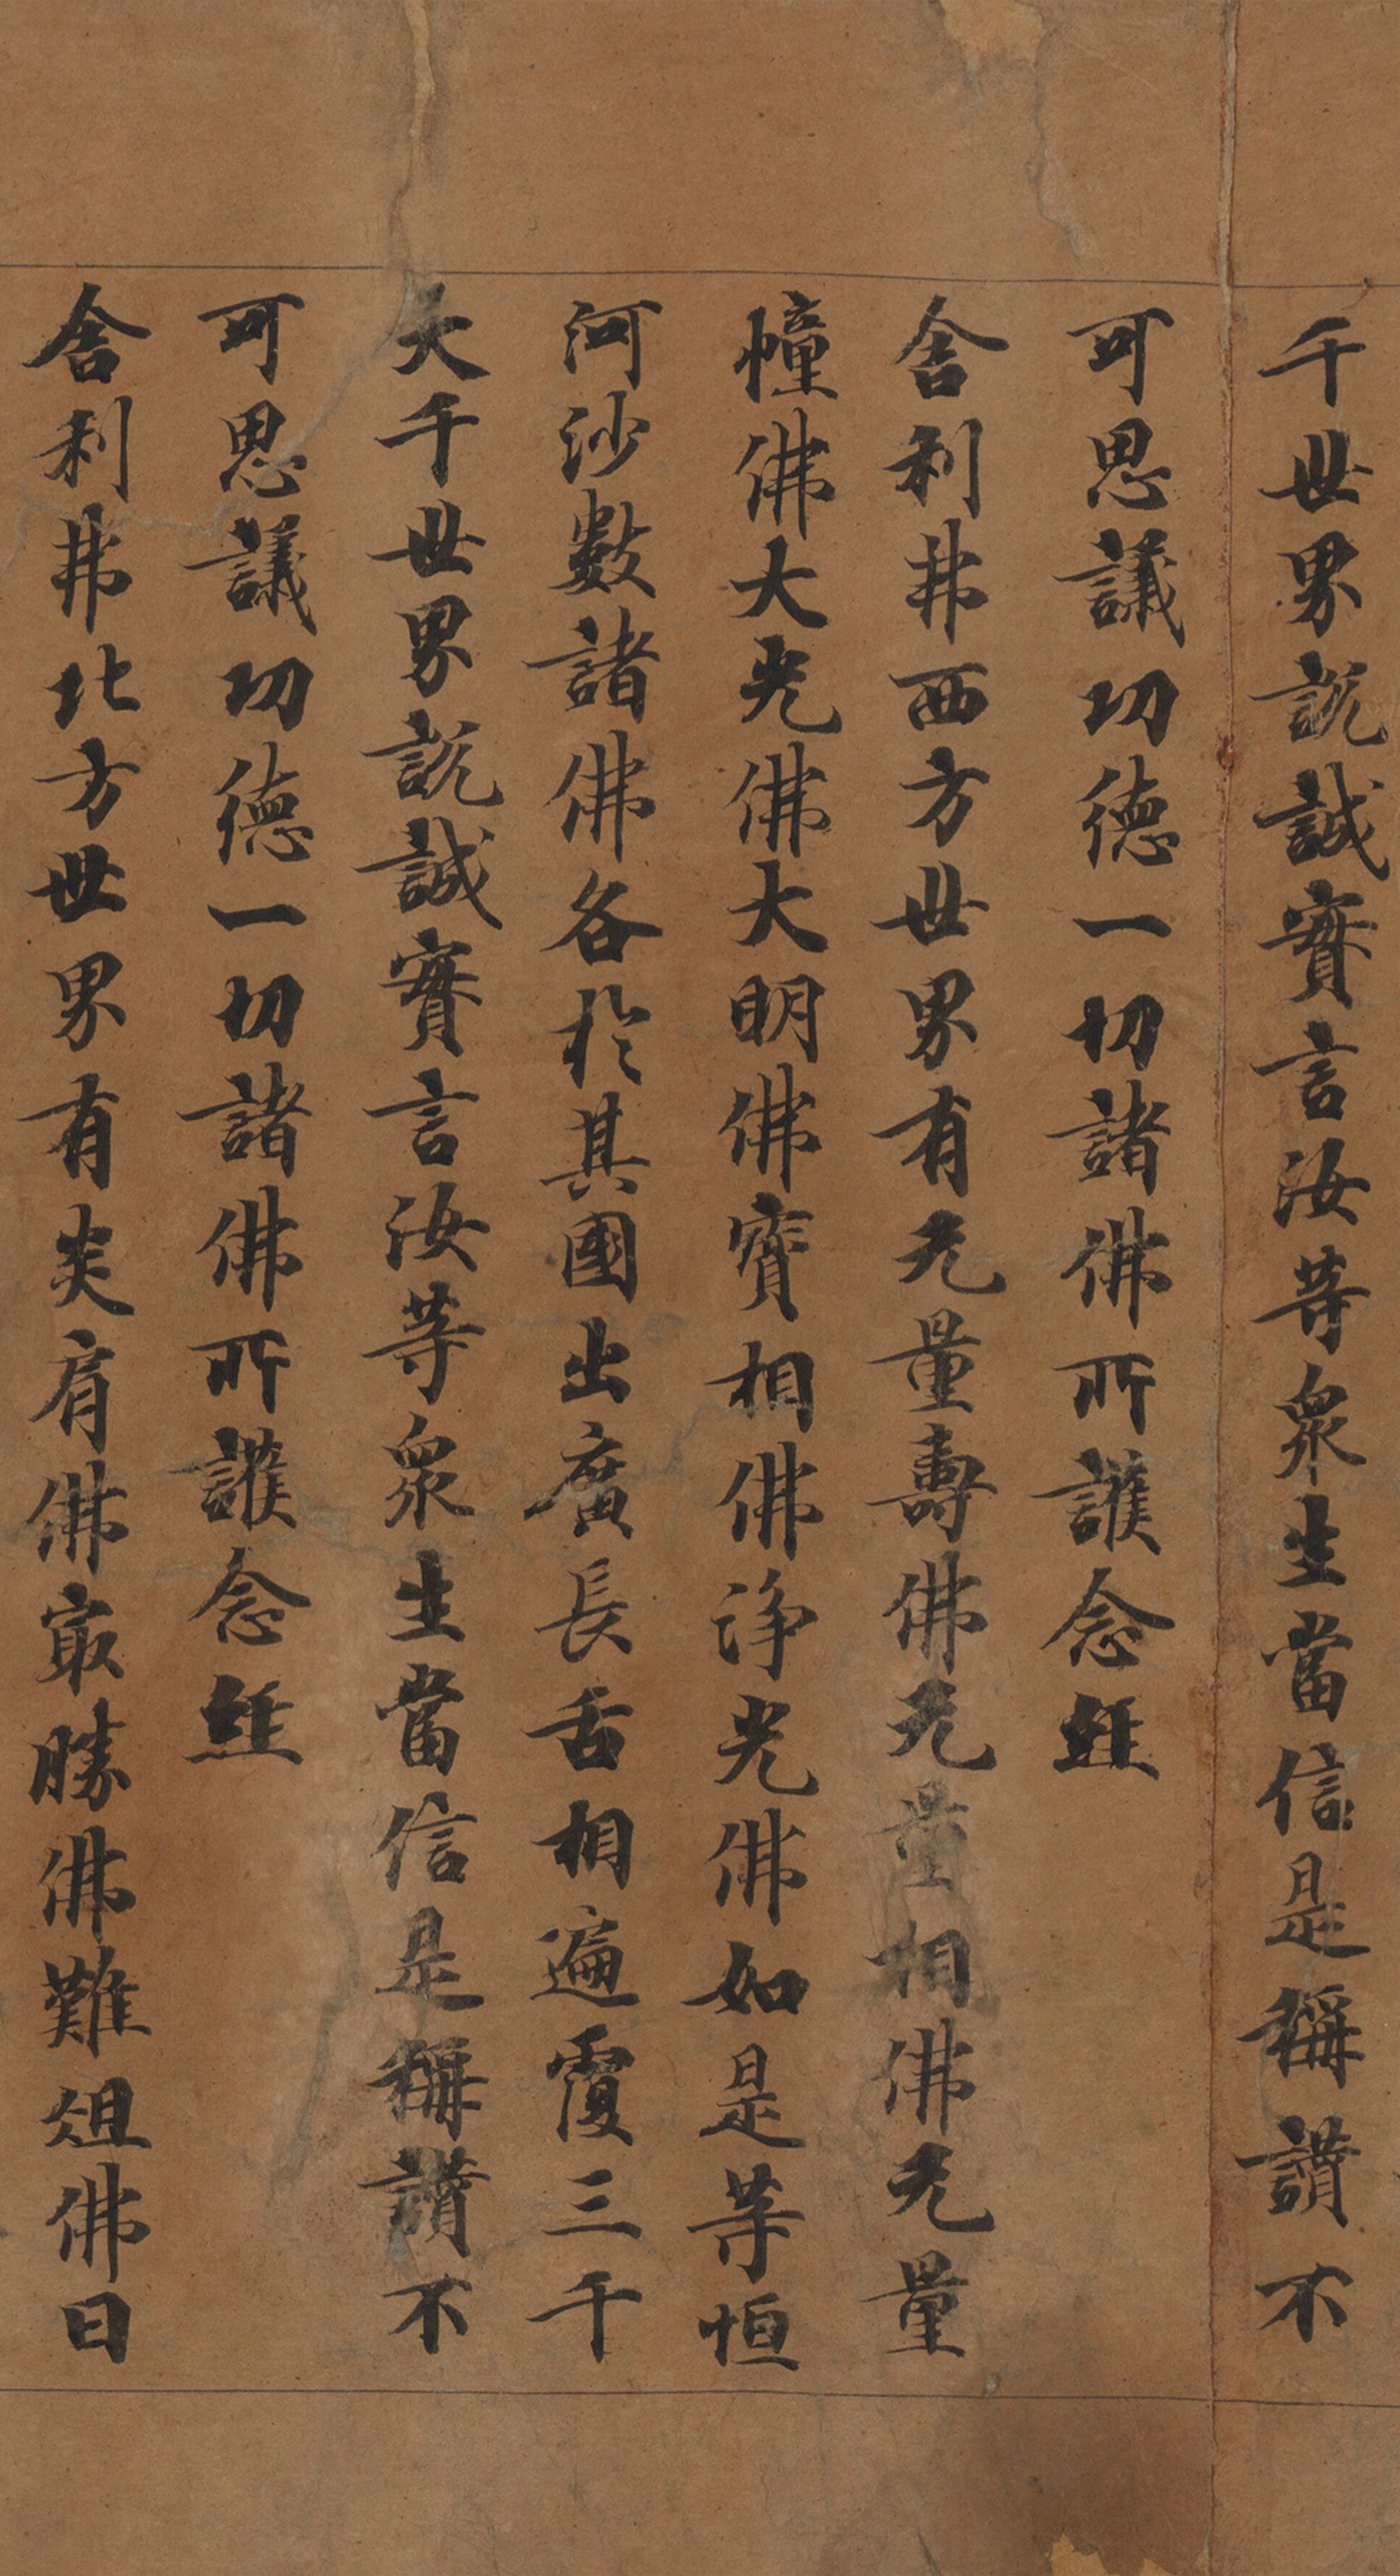 千世界説誠實言汝等衆生當信是稱讃不
可思議功徳一切諸佛所護念經
舍利弗西方世界有无量壽佛无量相佛无量
幢佛大光佛大明佛寶相佛淨光佛如是等恒
河沙數諸佛各於其國出廣長舌相遍覆三千
大千世界説誠實言汝等衆生當信是稱讃不
可思議功徳一切諸佛所護念經
舍利弗北方世界有炎肩佛冣勝佛難俎佛日